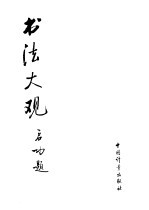 书法大观
启功题
中国计量出版社